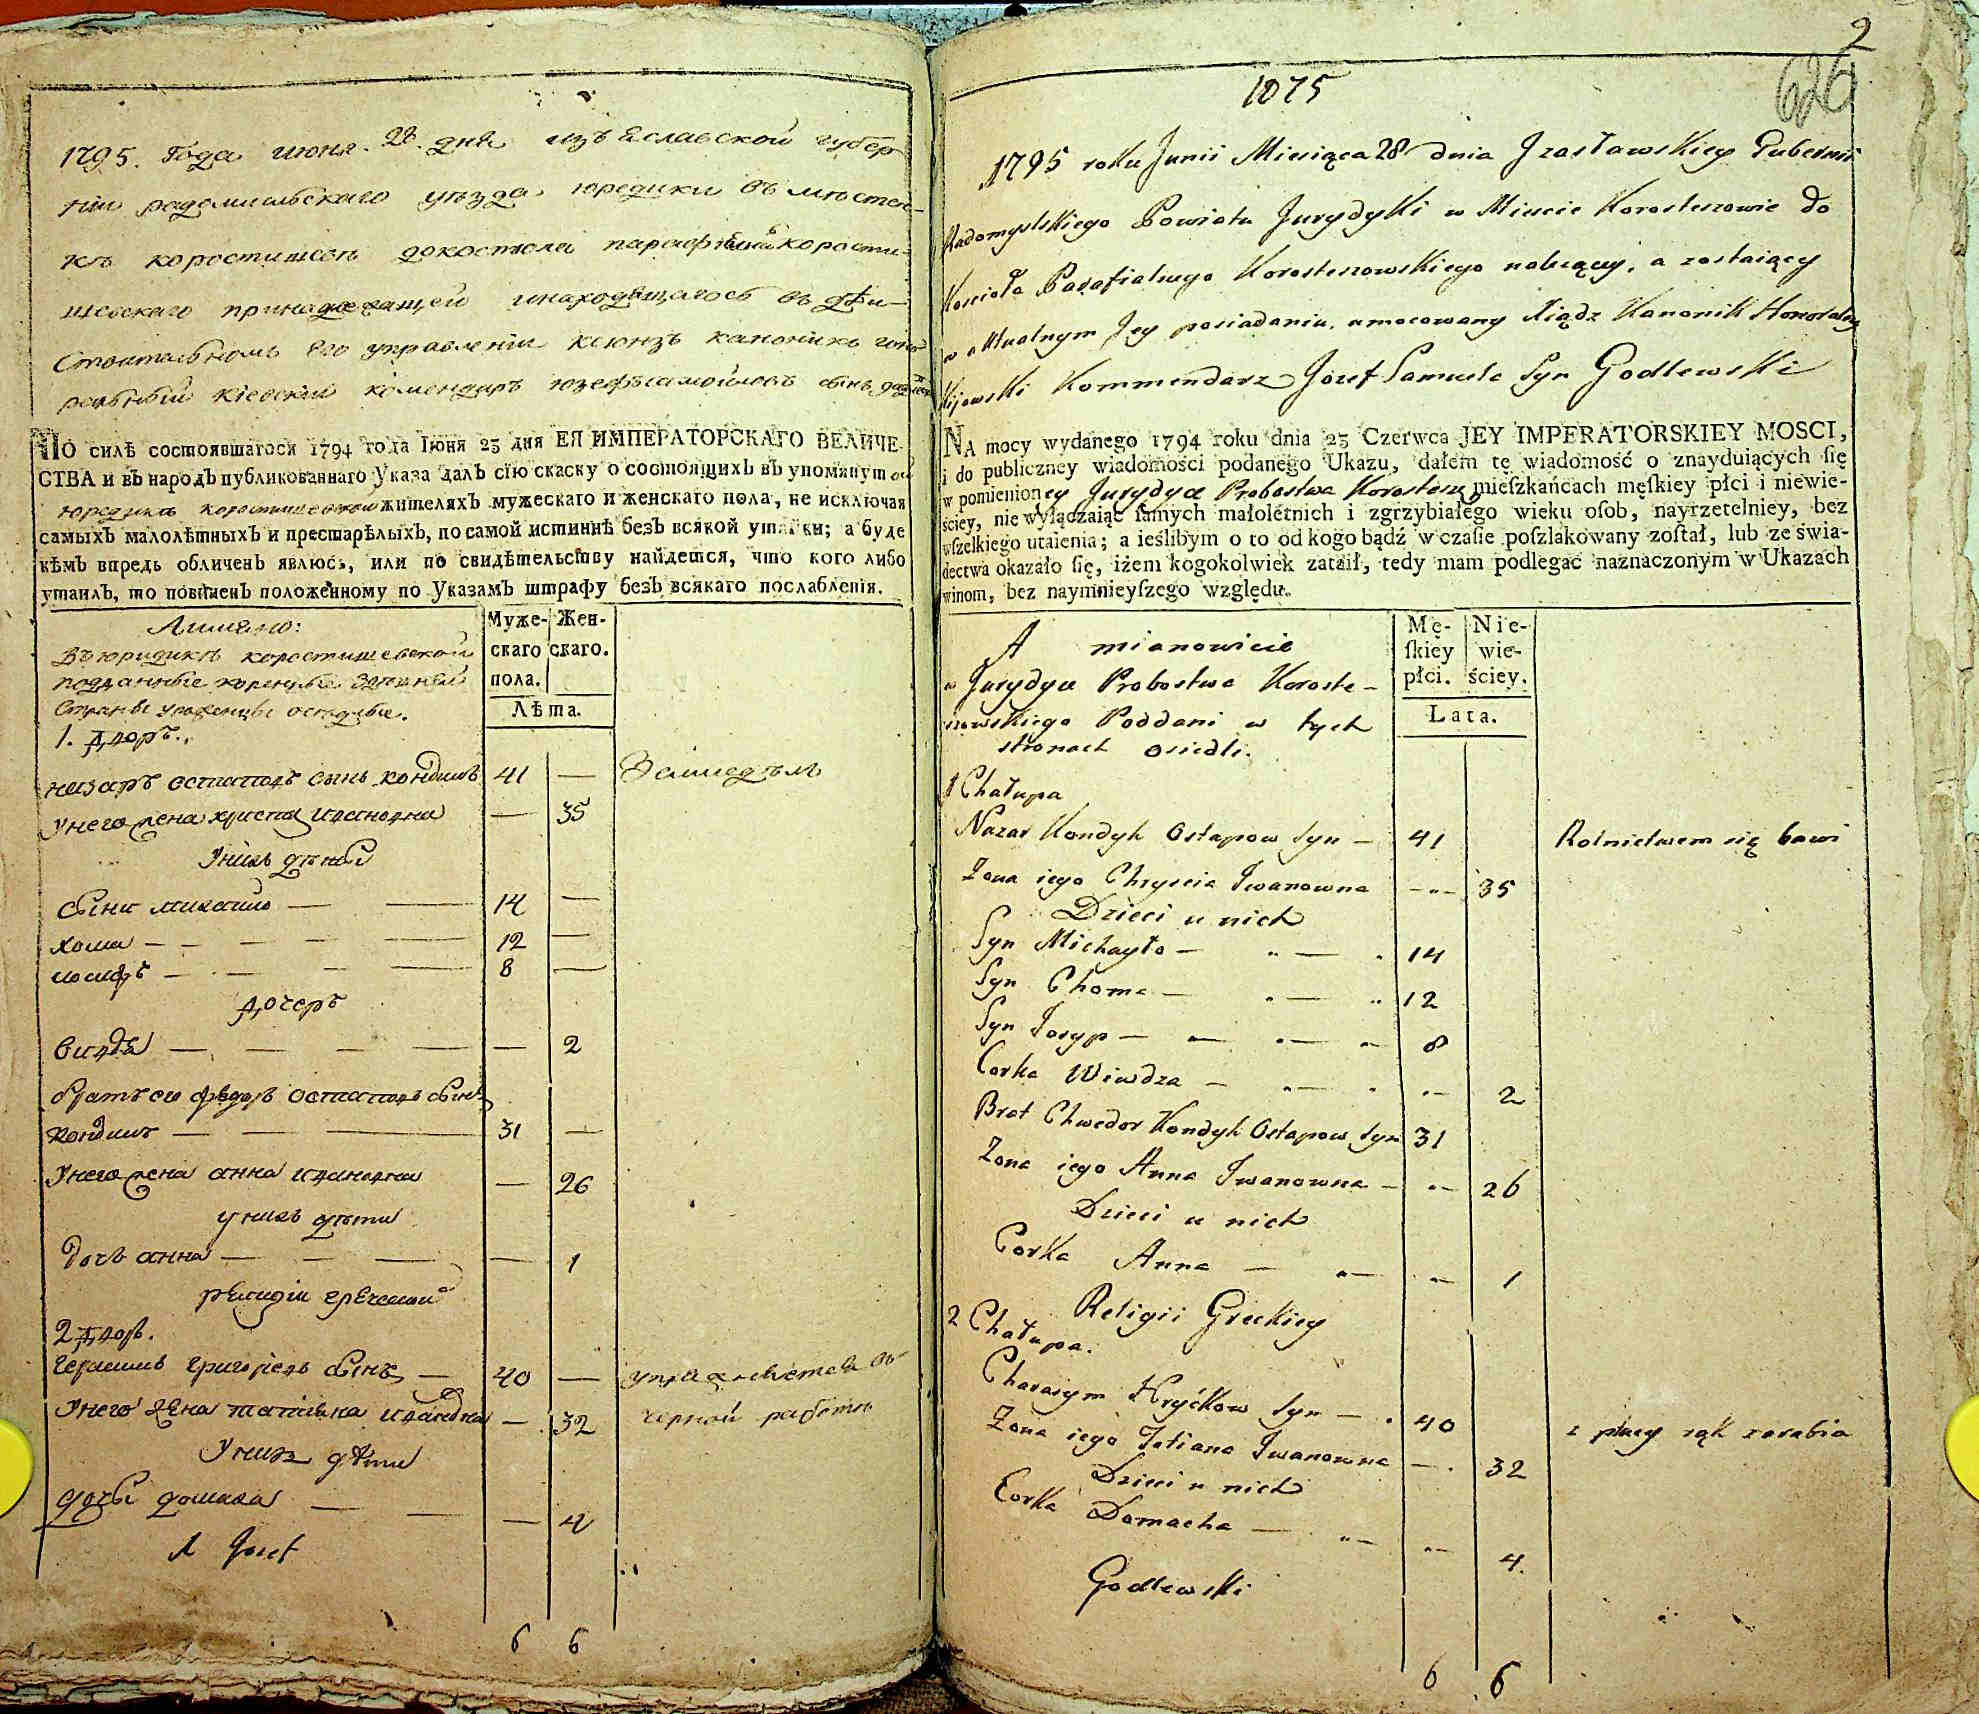 1795. Года июня. 28. дня изъ Еславской губер
ніи радомисльскаго уезда юредики въ местеч-
ке коростишеве докостюла парафіянъ корости-
шевскаго принадлежащей инаходящагось въ дѣи-
ствительномъ его управленіи ксюнзъ каноникъ гоно
ральный кіевскій комендаръ юзефъ самойловъ сынъ
ПО силѣ состоявшагося 1794 года Іюня 23 дня ЕЯ ИМПЕРАТОРСКАГО ВЕЛИЧЕ-
СТВА и въ народъ публикованнаго Указа далъ сію скаску о состоящихъ въ упомянутой
юредике коростишевской жителяхъ мужескаго и женскаго пола, не исключая
самыхъ малолѣтныхъ и престарѣлыхъ, по самой истиннѣ безъ всякой утайки; а буде
кѣмъ впредь обличенъ явлюсь, или по свидѣтельству найдется, что кого либо
утаилъ, то повиненъ положенному по Указамъ штрафу безъ всякаго послабленія.
Муже- Жен-
скаго скаго.
пола.
Лѣта.
Имянно:
Въ юридике коростишевской
подданные коренные здешней
Страны уроженцы оседлые.
1. Дворъ.
назаръ остаповъ сынъ кондикъ 41 — Земледелъ
У него жена христя ивановна — 35
У нихъ дети
сыни михаило — — 14 —
хома — — — — 12 —
иосифъ — — — — 8 —
Дочеръ
вивдя — — — — — 2
братъ его федоръ остаповъ сынъ
кондикъ — — — 31 —
У него жена анна ивановна — 26
у нихъ дети
дочъ анна — — — — 1
религіи греческой
2 Дворъ.
герасимъ григоріевъ сынъ — 40 — упражняется въ
У него жена татіяна ивановна — 32 черной работе
У нихъ дѣти
дочъ домаха — — — 4
X Jozef
6 6
2
626
1075
1795 roku Junii Miesiąca 28 dnia Jzasławskiey Gubernii
Radomyslskiego Powiatu Jurydyki w Miescie Korosteszowie do
Koscioła Parafialnego Korosteszowskiego należący, a zostaiący
w aktualnym Jey posiadaniu, umocowany Xiądz Kanonik Honoralny
Kijowski Kommendarz Jozef Samuela Syn Godlewski
NA mocy wydanego 1794 roku dnia 23 Czerwca JEY IMPERATORSKIEY MOSCI,
i do publiczney wiadomości podanego Ukazu, dałem tę wiadomość o znayduiących ſię
w pomienioney Jurydyce Probostwa Korostesz mieſzkańcach męſkiey płci i niewie-
ściey, nie wyłączaiąc ſamych małoletnich i zgrzybiałego wieku oſob, nayrzetelniey, bez
wſzelkiego utaienia; a ieślibym o to od kogo bądź w czaſie poſzlakowany zoſtał, lub ze świa-
dectwa okazało ſię, iżem kogokolwiek zataił, tedy mam podlegać naznaczonym w Ukazach
winom, bez naymnieyſzego względu.
Mę- Nie-
ſkiey wie-
płci. ściey.
Lata.
A mianowicie
w Jurydyce Probostwa Koroste-
szowskiego Poddani w tych
stronach osiedli.
1 Chałupa
Nazar Kondyk Ostapow Syn — 41 Rolnictwem się bawi
Zona iego Chryscia Iwanowna — 35
Dzieci u nich
Syn Michayło — — 14
Syn Choma — — 12
Syn Josyp — — — 8
Corka Wiwdza — — — 2
Brat Chwedor Kondyk Ostapow Syn 31
Zona iego Anna Iwanowna — — 26
Dzieci u nich
Corka Anna — — — 1
Religii Greckiey
2 Chałupa.
Charasym Hryćkow Syn — 40 z pracy rąk zarabia
Zona iego Tatiana Iwanowna — 32
Dzieci u nich
Corka Domacha — — — 4.
Godlewski
6 6